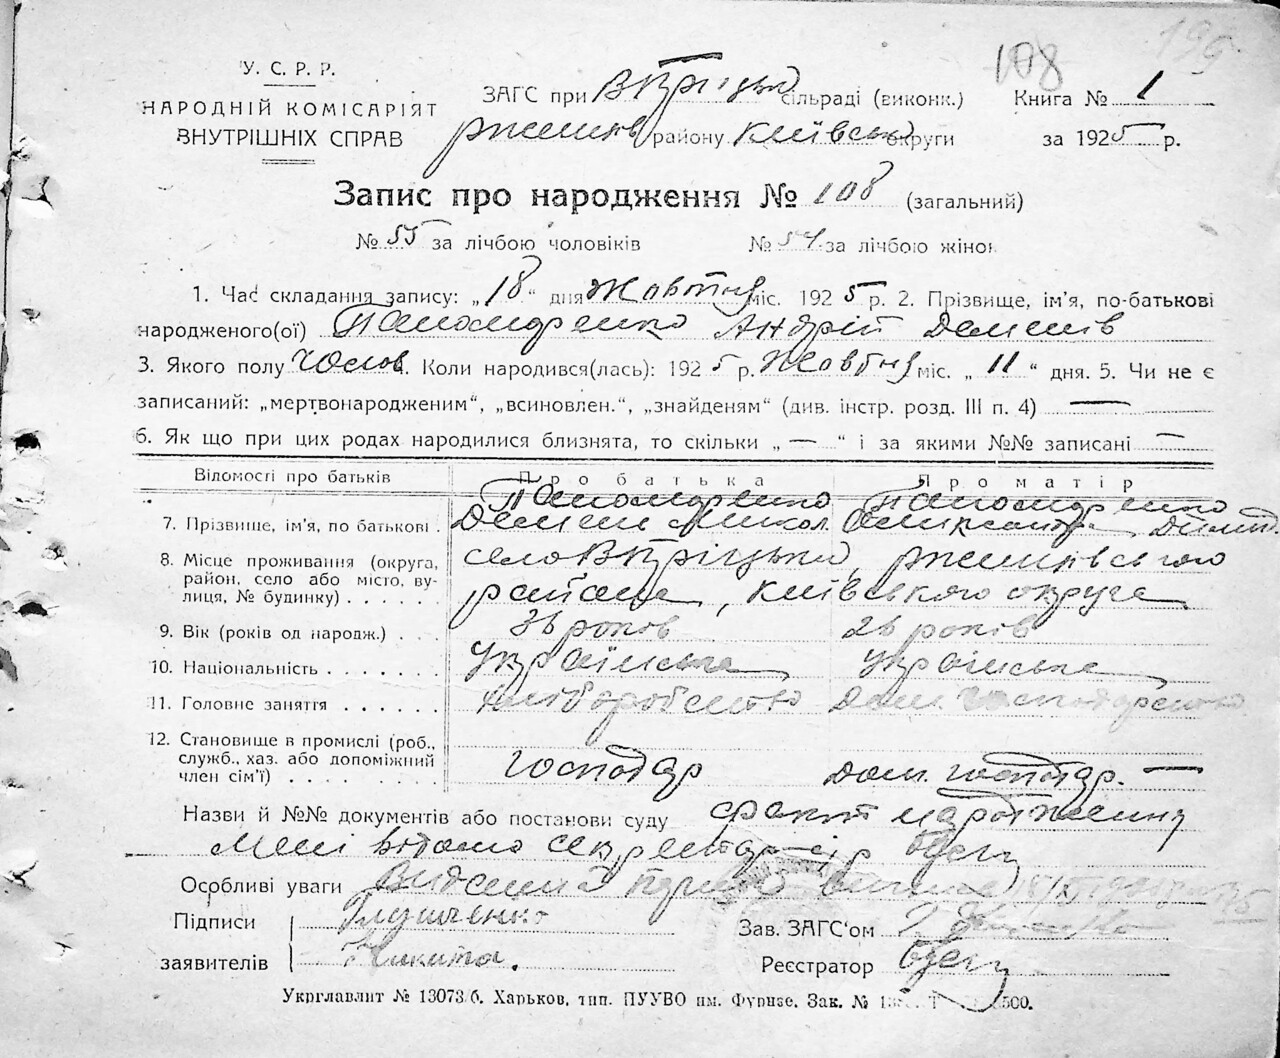 108
199
У. С. Р. Р.
НАРОДНІЙ КОМІСАРІЯТ
ВНУТРІШНІХ СПРАВ
ЗАГС при сільраді (виконк.) Книга № 1
району Київсько округи за 1925 р.
Запис про народження № 108 (загальний)
№ 55 за лічбою чоловіків № 54 за лічбою жінок
1. Час складання запису: „18“ дня Жовтня міс. 1925 р. 2. Прізвище, ім'я, по-батькові
народженого(ої) Панамаренко Андрій Деменів
3. Якого полу Чолов. Коли народився(лась): 1925 р. Жовтня міс. „11“ дня. 5. Чи не є
записаний: „мертвонародженим“, „всиновлен.“, „знайденям“ (див. інстр. розд. III п. 4) —
6. Як що при цих родах народилися близнята, то скільки „—“ і за якими №№ записані —
Відомості про батьків Про батька Про матір
Панамаренко Панамаренко
7. Прізвище, ім'я, по батькові . Демен Микол.
8. Місце проживання (округа, село
район, село або місто, ву-
лиця, № будинку) . . . . району, Київського округа
9. Вік (років од народж.) . . . 36 років 26 років
10. Національність . . . . . . . Українська Українська
11. Головне заняття . . . . . . Хліборобство Дом. господарство
12. Становище в промислі (роб.,
служб., хаз. або допоміжний
член сім'ї) . . . . . . . . Господар Дом. господар. —
Назви й №№ документів або постанови суду факт народження
Мені відомо секретар с/р
Особливі уваги
Підписи Глущенко Зав. ЗАГС'ом
заявителів Микита. Реєстратор
Укрглавлит № 13073 б. Харьков, тип. ПУУВО им. Фрунзе. Зак. №